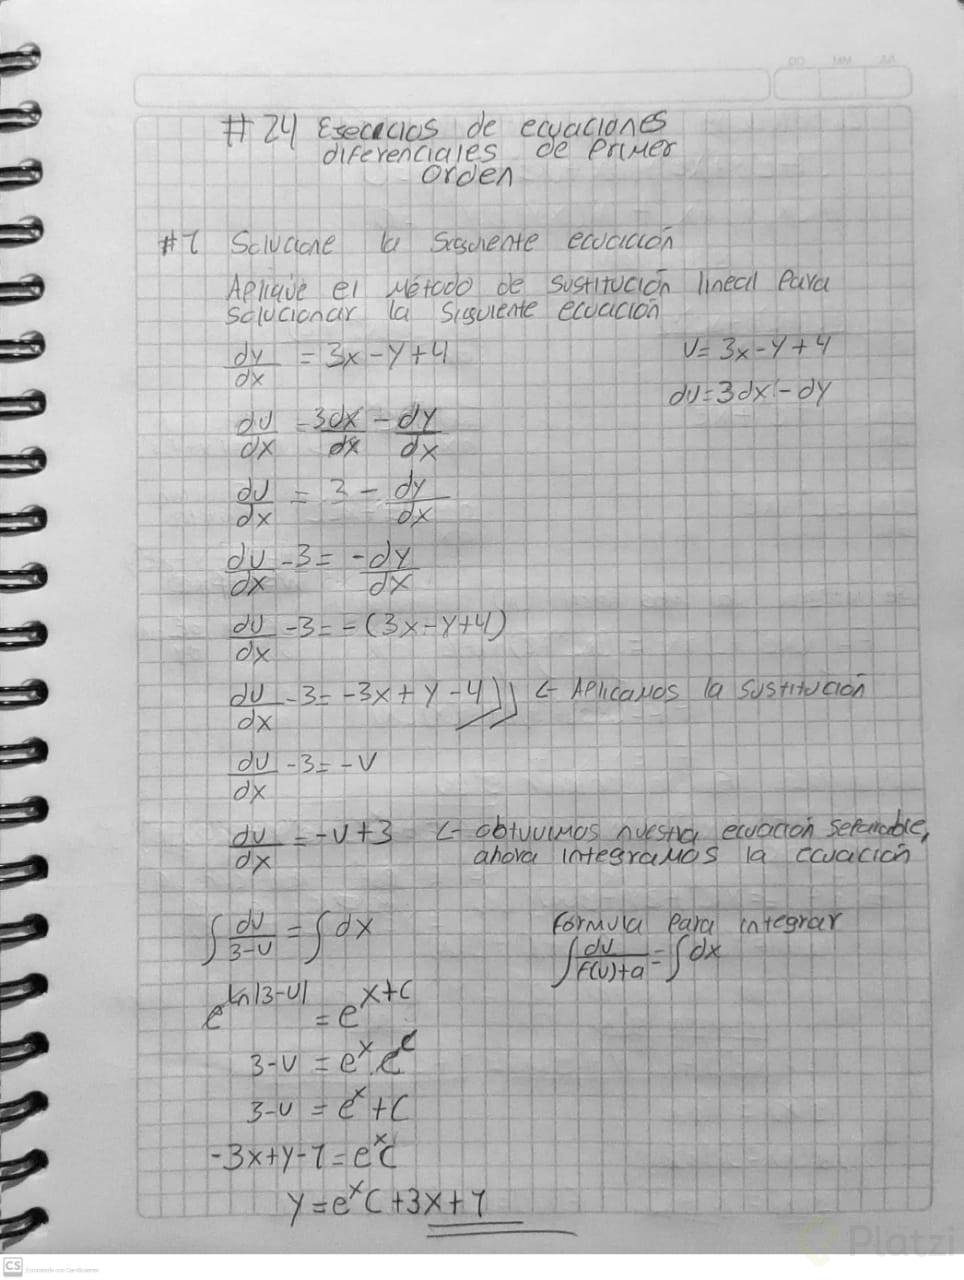 DD MM AA
# 24 Esececios de ecuaciones
diferenciales de Primer
orden
#1 Solucione la siguiente ecuación
Aplique el método de sustitución lineal para
solucionar la siguiente ecuación
dy/dx = 3x - y + 4
U = 3x - y + 4
du = 3dx - dy
du/dx = 3dx/dx - dy/dx
du/dx = 3 - dy/dx
du/dx - 3 = -dy/dx
du/dx - 3 = -(3x - y + 4)
du/dx - 3 = -3x + y - 4 ]] <- Aplicamos la sustitución
du/dx - 3 = -U
du/dx = -U + 3 <- obtuvimos nuestra ecuación separable,
ahora integramos la ecuación
∫ du/3-U = ∫ dx
Formula para integrar
∫ du/f(u)+a = ∫ dx
e^ln|3-U| = e^x+c
3-U = e^x e^c
3-U = e^x + C
-3x+y-1 = e^x C
y = e^x C + 3x + 1
Platzi
CS